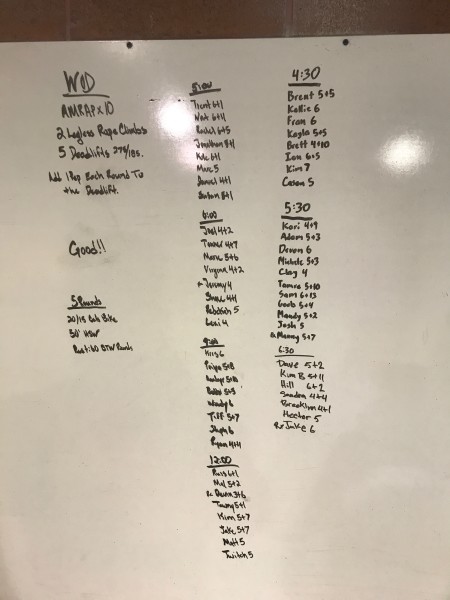 WOD
AMRAP x 10
2 Legless Rope Climbs
5 Deadlifts 275/185.
Add 1 Rep Each Round To
the Deadlift.
Good!!
5 Rounds
20/15 Cal Bike
50' HSW
Rest :60 BTW Rounds
5:00
Trent 6+1
Nat 6+1
Rachel 6+5
Jonathan 8+1
Kyle 6+1
Marc 5
Daniel 4+1
Susan 8+1
6:00
Joel 4+2
Turner 4+7
Marie 5+6
Virginia 4+2
Jeremy 4
Shane 4+1
Rebekah 5
Lexi 4
9:00
Kris 6
Paige 5+8
5+8
5+5
Wendy 6
Tiff 5+7
Steph 6
Ryan 4+4
12:00
6+1
Mel 5+2
Rx Devin 3+6
Tammy 5+1
Kim 5+7
Jake 5+7
Matt 5
Twitch 5
4:30
Brent 5+5
Kallie 6
Fran 6
Kayla 5+5
Brett 4+10
Ian 6+5
Kim 7
Casen 5
5:30
Kari 4+9
Adam 5+3
Devon 6
Michele 5+3
Clay 4
Tamra 5+10
Sam 6+13
Barb 5+4
Mandy 5+2
Josh 5
Rx Manny 5+7
6:30
Dave 5+2
Kim B 5+11
Hill 6+2
4+4
Brooklyn 4+1
Heather 5
Rx Jake 6